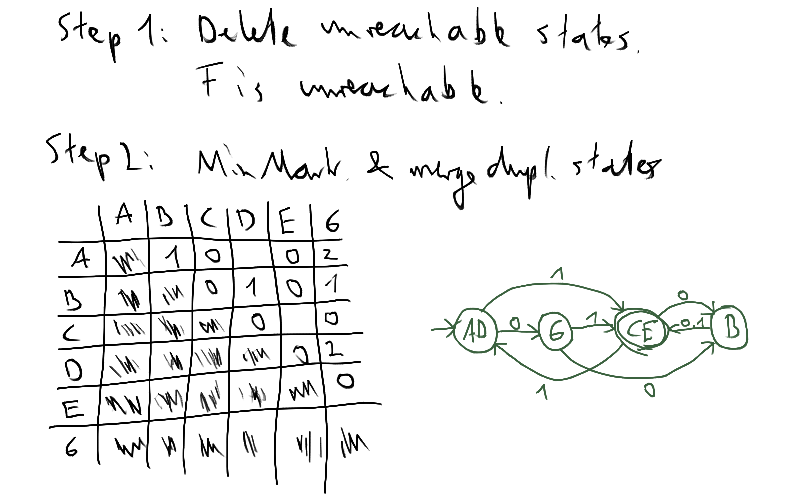 Step 1: Delete unreachable states.
F is unreachable.
Step 2: MinMark & merge dupl. states
A B C D E G
A 1 0 0 2
B 0 1 0 1
C 0 0
D 0 2
E 0
G
1
AD 0 G 1 CE 0 0,1 B
1 0